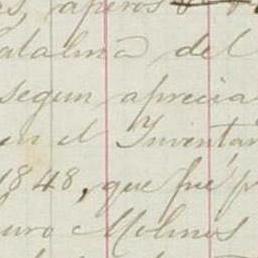 s, aperos
atalina del
segun aprecia
en el Inventar
1848, que fué p
uro Molinos